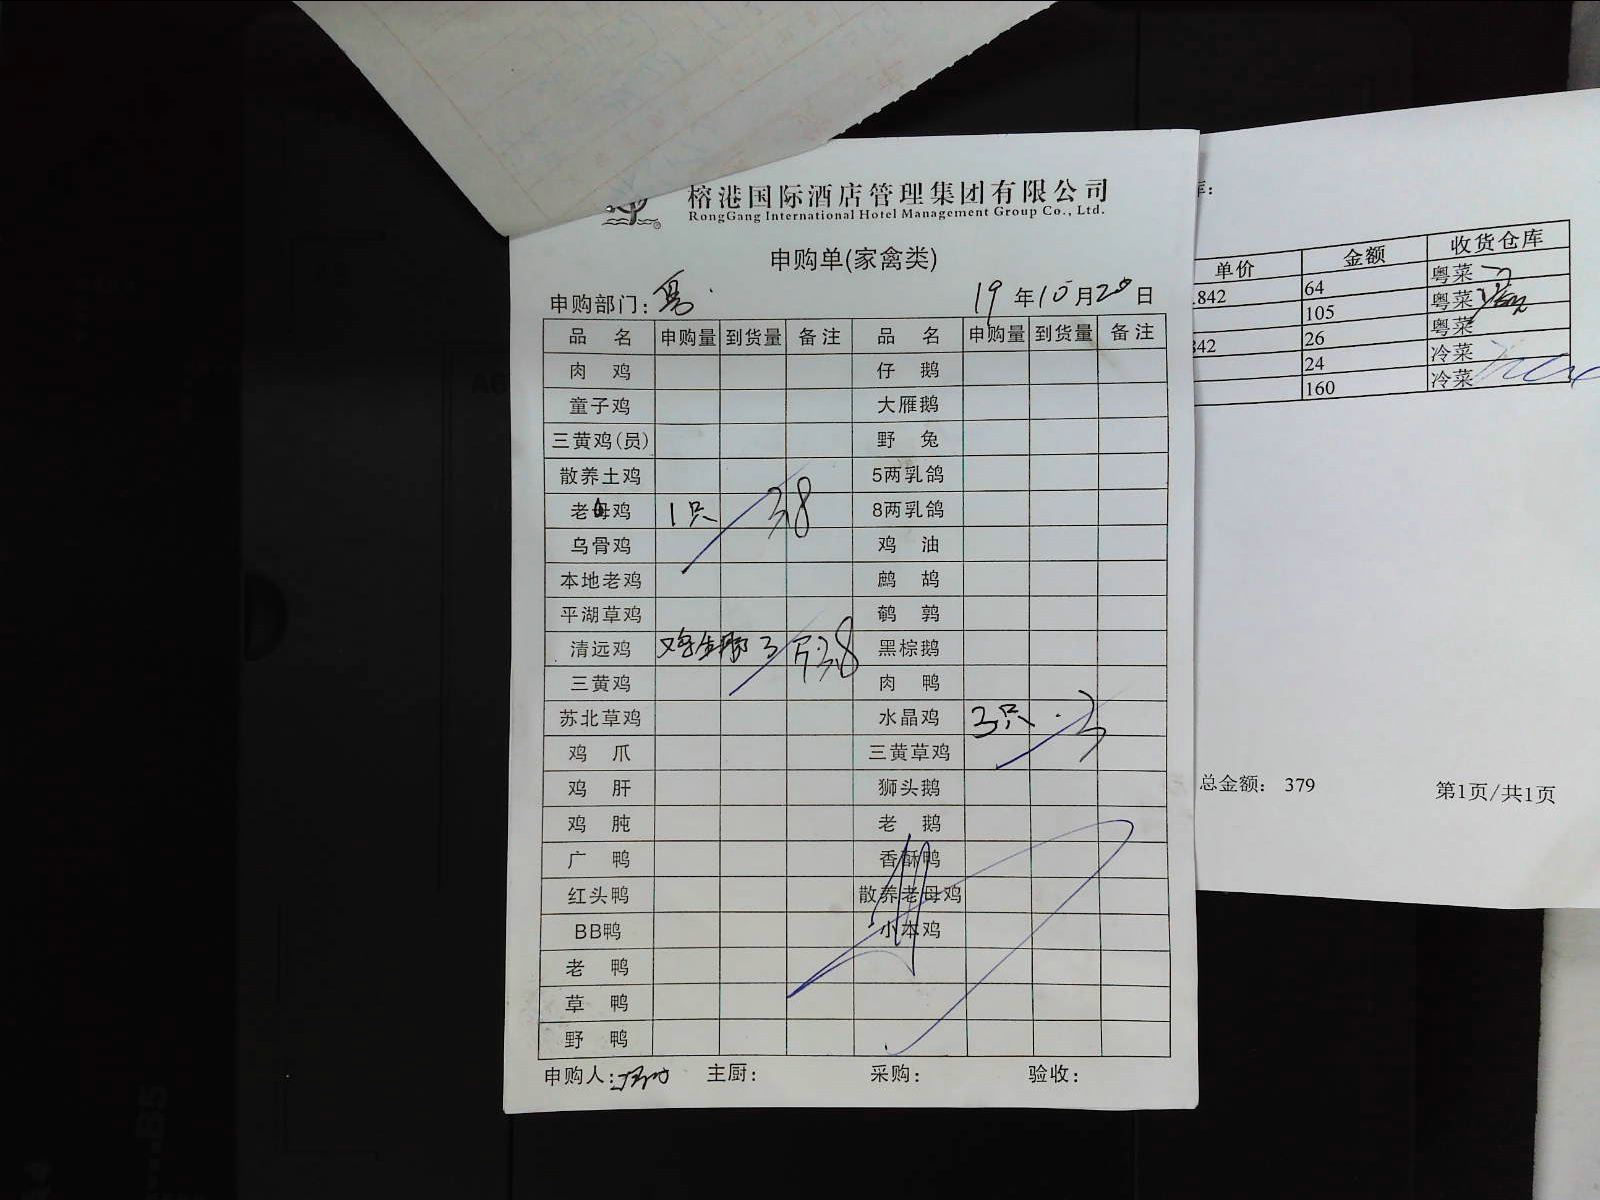 榕港国际酒店管理集团有限公司
RongGang International Hotel Management Group Co., Ltd.
申购单(家禽类)
申购部门:
19年10月20日
品 名 申购量 到货量 备注 品 名 申购量 到货量 备注
肉 鸡 仔 鹅
童子鸡 大雁鹅
三黄鸡(员) 野 兔
散养土鸡 5两乳鸽
老母鸡 1只 3.8 8两乳鸽
乌骨鸡 鸡 油
本地老鸡 鹧 鸪
平湖草鸡 鹌 鹑
清远鸡 3 斤 3.8 黑棕鹅
三黄鸡 肉 鸭
苏北草鸡 水晶鸡 3只 3
鸡 爪 三黄草鸡
鸡 肝 狮头鹅
鸡 肫 老 鹅
广 鸭 香酥鸭
红头鸭 散养老母鸡
BB鸭 小本鸡
老 鸭
草 鸭
野 鸭
申购人: 主厨: 采购: 验收:
库:
单价 金额 收货仓库
.842 64 粤菜
105 粤菜
842 26 粤菜
24 冷菜
160 冷菜
总金额: 379 第1页/共1页
B5